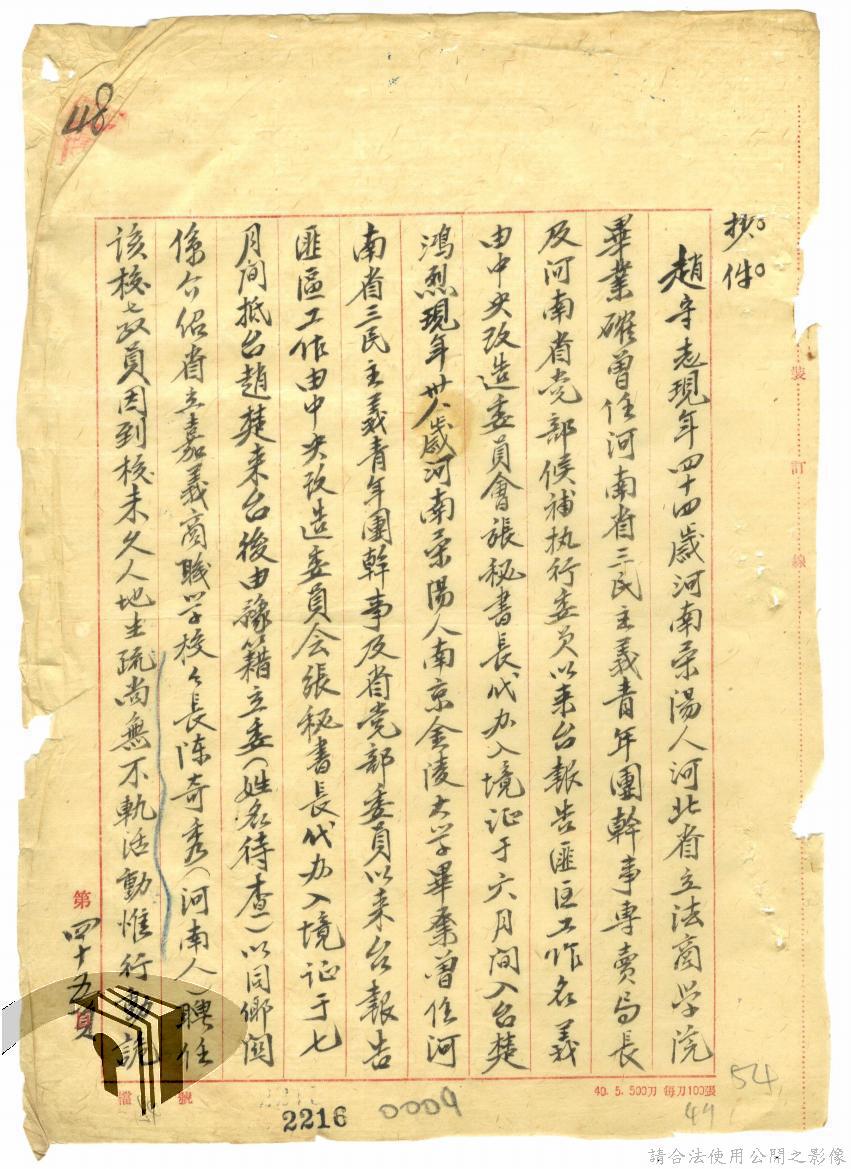 48
抄件
趙守志現年四十四歲河南荣陽人河北省立法商学院
畢業確曾任河南省三民主義青年團幹事專賣局長
及河南省党部候補执行委員以来台報告匪区工作名義
由中央改造委員會張秘書長代办入境证于六月间入台楚
鴻烈現年卅八歲河南荣陽人南京金陵大学畢業曾任河
南省三民主義青年團幹事及省党部委員以来台報告
匪區工作由中央改造委員会張秘書長代办入境证于七
月间抵台趙楚来台後由豫籍立委（姓名待查）以同鄉関
係介绍省立嘉義商職学校々長陈奇秀（河南人）聘任
該校教員因到校未久人地生疏尚無不軌活動惟行動詭
裝訂線
第四十五頁
檔號
2216
0009
40. 5. 500刀 每刀100張
54
49
請合法使用公開之影像